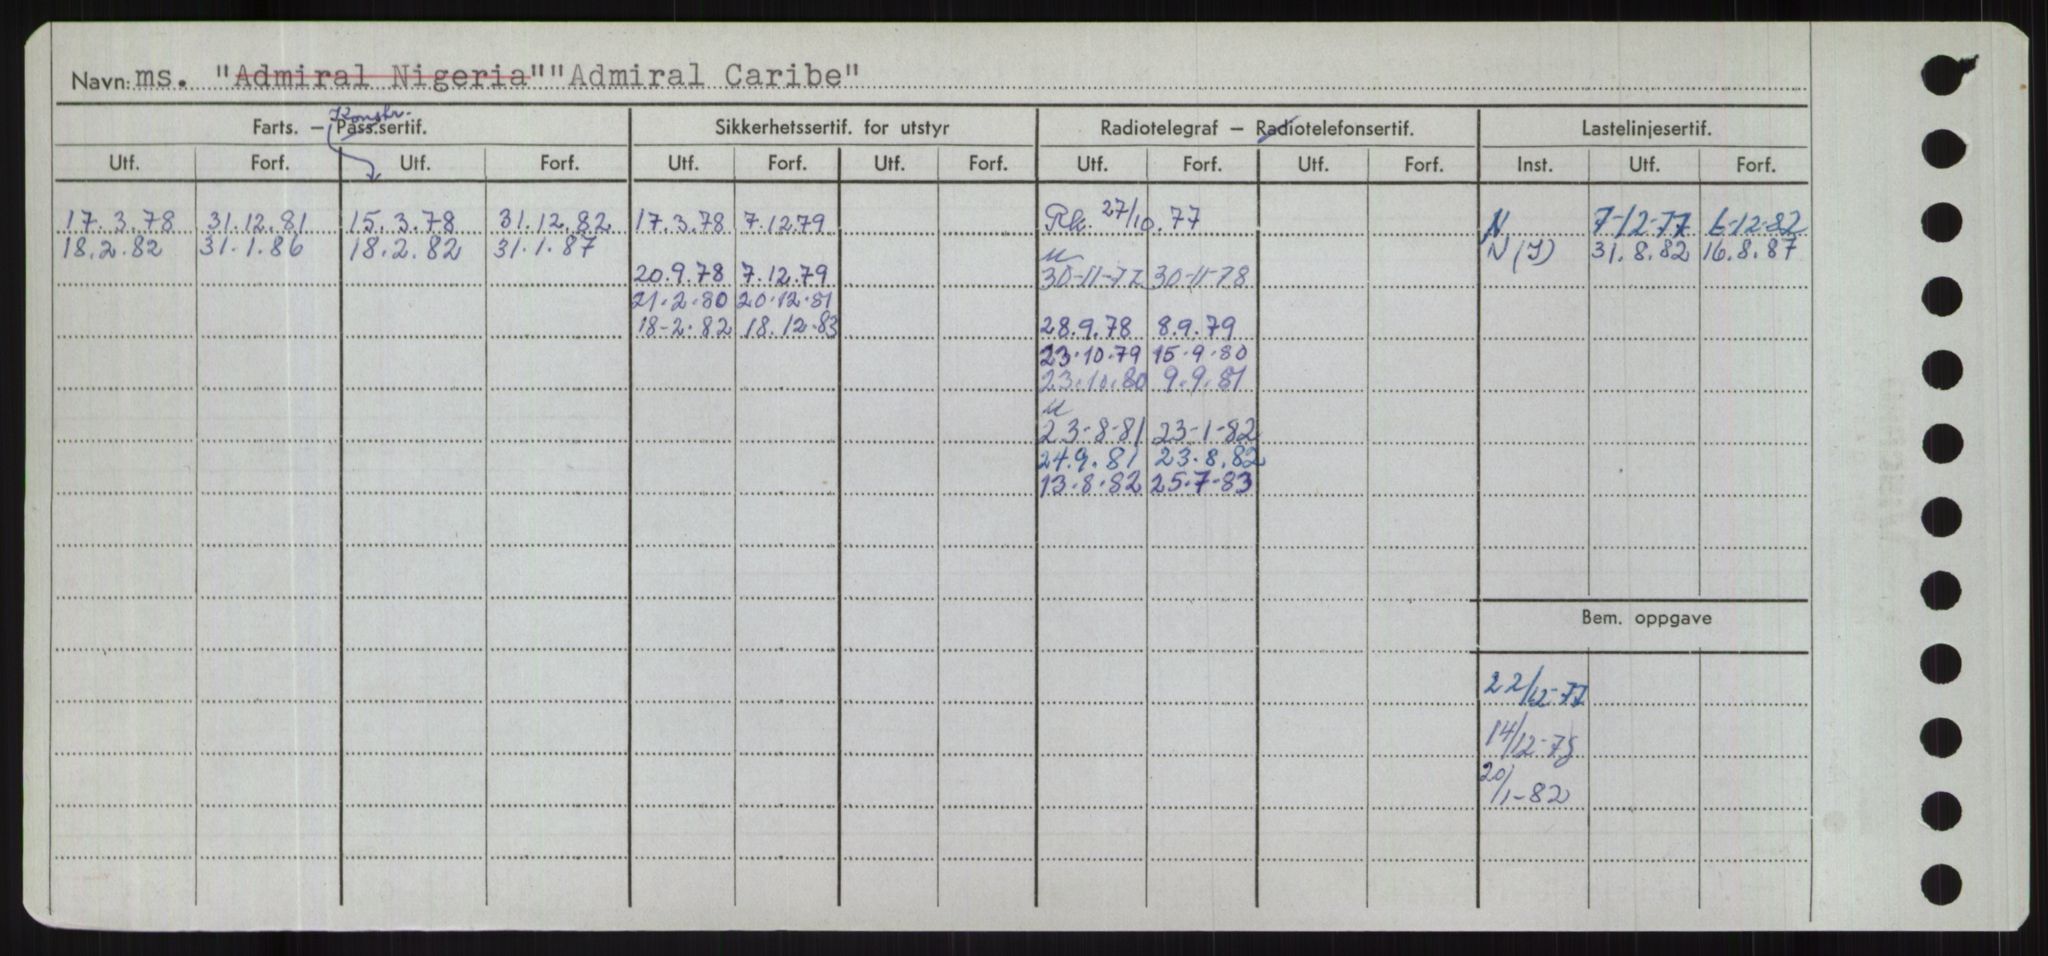 Navn: ms. "Admiral Nigeria" "Admiral Caribe"
Konstr.
Farts. – Pass.sertif. Sikkerhetssertif. for utstyr Radiotelegraf – Radiotelefonsertif. Lastelinjesertif.
Utf. Forf. Utf. Forf. Utf. Forf. Utf. Forf. Utf. Forf. Utf. Forf. Inst. Utf. Forf.
17.3.78 31.12.81 15.3.78 31.12.82 17.3.78 7.12.79 Rk. 27/10.77 N 7-12-77 6-12-82
18.2.82 31.1.86 18.2.82 31.1.87 N (I) 31.8.82 16.8.87
20.9.78 7.12.79 30-11-77 30-11-78
21.2.80 20.12.81
18-2.82 18.12.83 28.9.78 8.9.79
23.10.79 15.9.80
23.10.80 9.9.81
23-8-81 23-1-82
24.9.81 23.8.82
13.8.82 25.7-83
Bem. oppgave
22/12-77
14/12-78
20/1-82